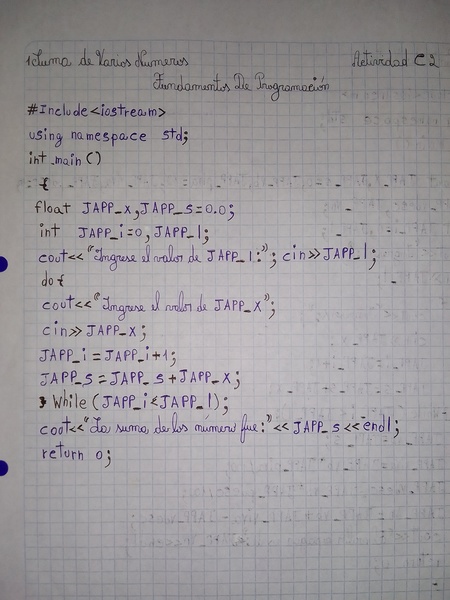 1 Suma de Varios Numeros Actividad C2
Fundamentos De Programación
#Include<iostream>
using namespace std;
int main()
{
float JAPP_x, JAPP_s=0.0;
int JAPP_i=0, JAPP_l;
cout<<"Ingrese el valor de JAPP_l:"; cin>>JAPP_l;
do{
cout<<"Ingrese el valor de JAPP_x";
cin>>JAPP_x;
JAPP_i=JAPP_i+1;
JAPP_s=JAPP_s+JAPP_x;
} While(JAPP_i<JAPP_l);
cout<<"La suma de los número fue:"<<JAPP_s<<endl;
return 0;